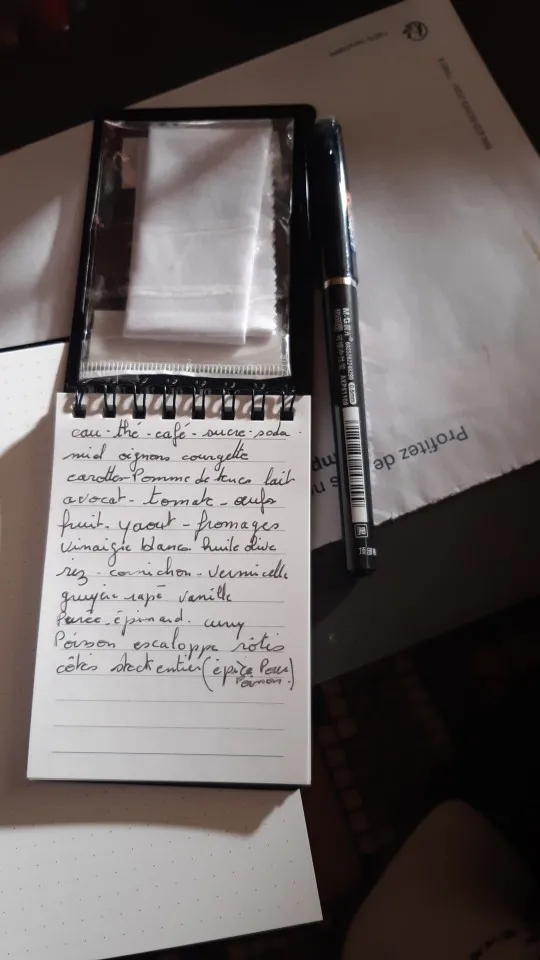 eau - thé - café - sucre - soda.
miel oignons courgette
carottes Pomme de terres lait
avocat - tomate - œufs
fruit - yaout - fromages
vinaigre blanc huile olive
riz - cornichon - vermicelle
gruyère rapé vanille
Purée - épinard. curry
Poisson escaloppe rôtis
côtes steck entier (épice Pour
Poisson.)
M&G
Profitez de